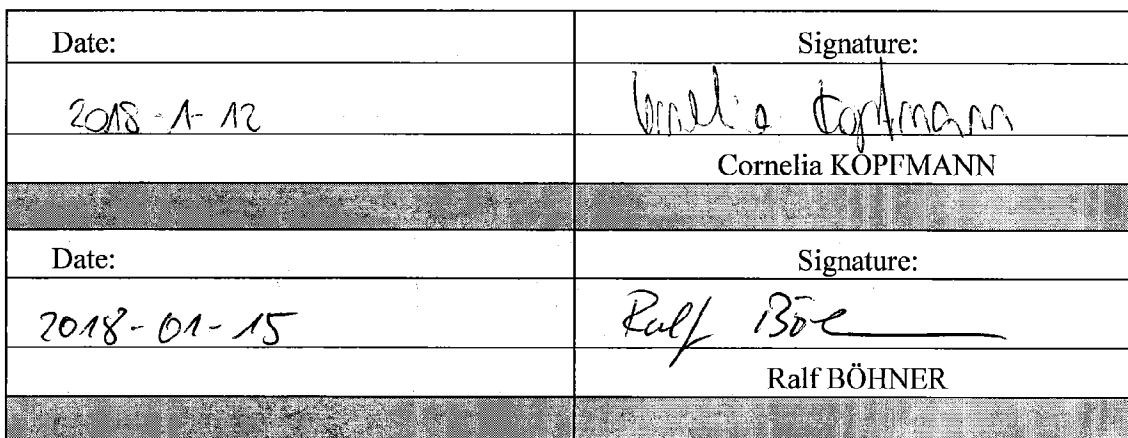 Date: Signature:
2018-1-12 Cornelia Kopfmann
Cornelia KOPFMANN
Date: Signature:
2018-01-15 Ralf Böh
Ralf BÖHNER